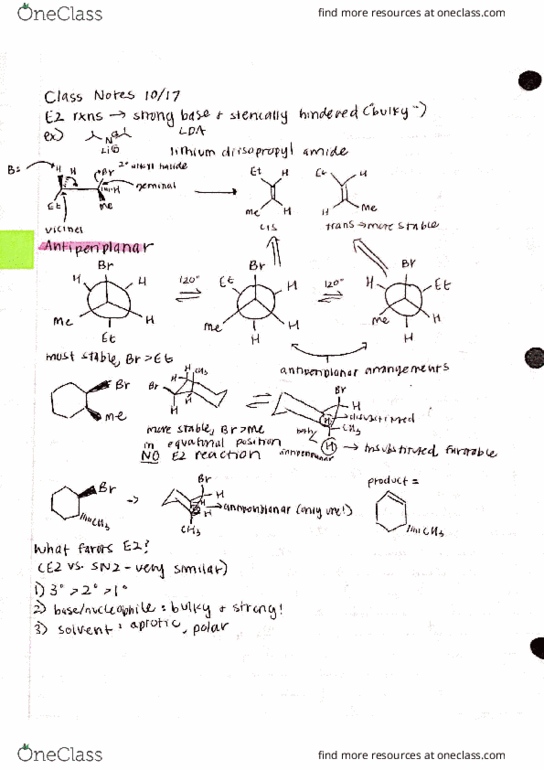 OneClass
find more resources at oneclass.com
Class Notes 10/17
E2 rxns → strong base + sterically hindered ("bulky")
ex) N LDA
Li⊕
lithium diisopropyl amide
B: H H Br 2° alkyl halide
H geminal
Et Me
vicinal
Et H Et H
Me H H Me
cis trans → more stable
Antiperiplanar
Br Br Br
H H 120° Et H 120° H Et
Me H Me H Me H
Et H H
most stable, Br > Et
antiperiplanar arrangements
Br
Me
Br H CH3
H H
Br
H
H → disubstituted
CH3
both antiperiplanar
H → trisubstituted, favorable
more stable, Br > Me
in equatorial position
NO E2 reaction
Br
CH3
→
Br
H
H
H → antiperiplanar (only one!)
CH3
product =
CH3
What favors E2?
(E2 vs. SN2 - very similar)
1) 3° > 2° > 1°
2) base/nucleophile = bulky + strong!
3) solvent = aprotic, polar
OneClass
find more resources at oneclass.com